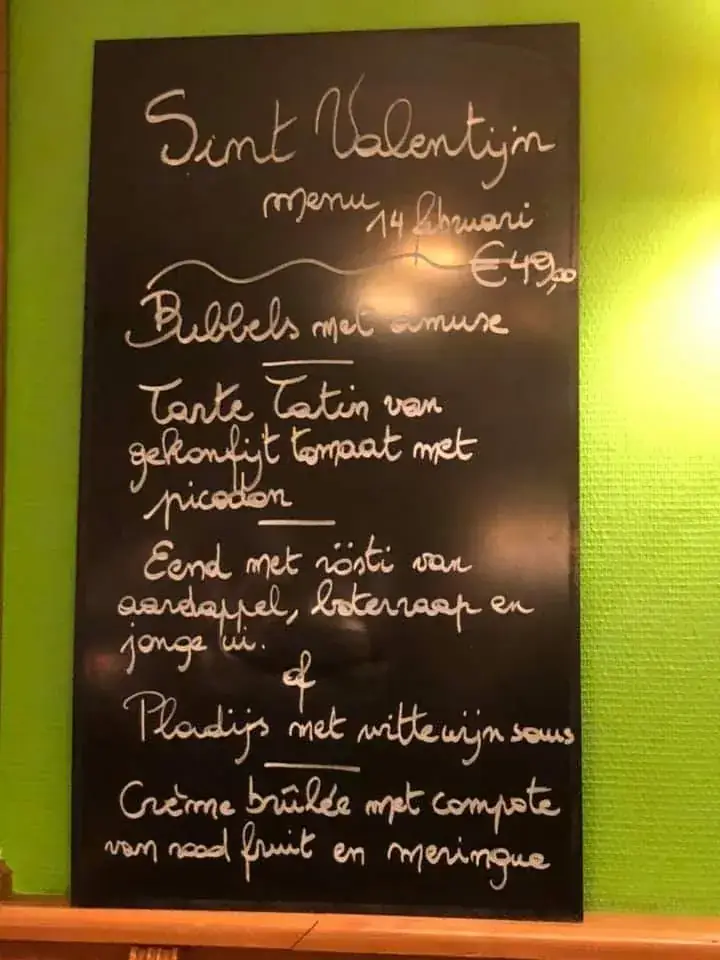 Sint Valentijn
menu 14 februari
€49,00
Bubbels met amuse
Tarte Tatin van
gekonfijt tomaat met
picodon
Eend met rösti van
aardappel, boterraap en
jonge ui.
of
Pladijs met wittewijn saus
Crème brûlée met compote
van rood fruit en meringue